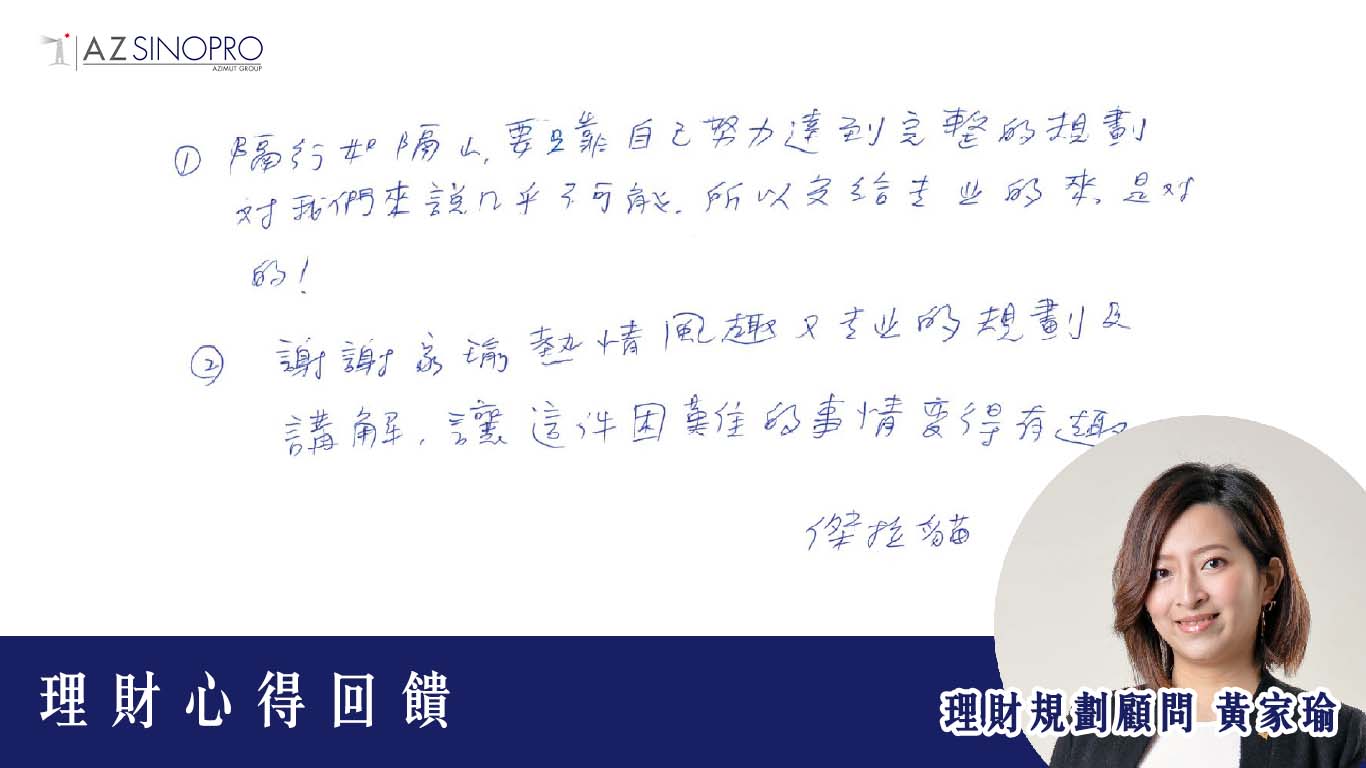 AZ SINOPRO
AZIMUT GROUP
① 隔行如隔山,要只靠自己努力達到完整的規劃
对我們來說几乎不可能.所以交給专业的來,是对
的!
② 謝謝家瑜熱情風趣又专业的規劃及
講解,讓這件困難的事情變得有趣
傑拉貓
理財心得回饋
理財規劃顧問 黃家瑜